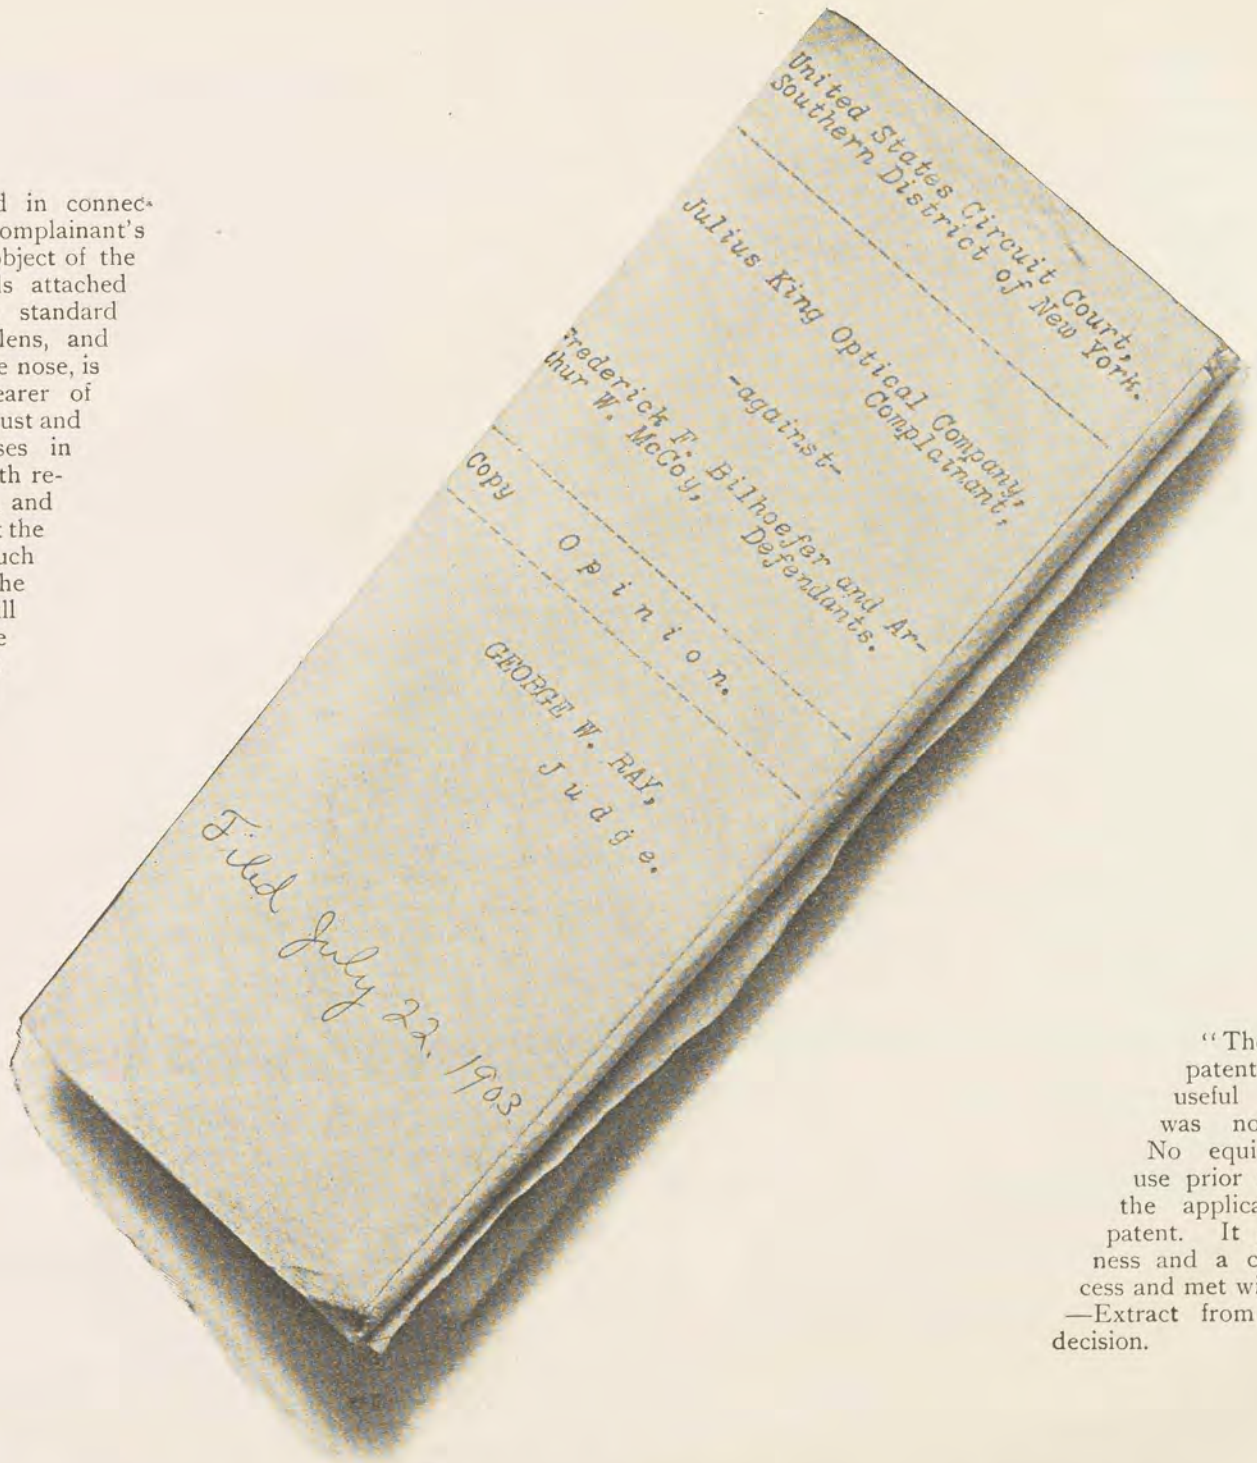 d in connec-
omplainant's
bject of the
s attached
standard
lens, and
e nose, is
earer of
ust and
ses in
th re-
and
t the
uch
he
ll
e
United States Circuit Court,
Southern District of New York.
Julius King Optical Company,
Complainant,
-against-
Frederick F. Bilhoefer and Ar-
thur W. McCoy,
Defendants.
Copy
Opinion.
GEORGE W. RAY,
Judge.
Filed July 22. 1903
“The
patent
useful
was no
No equi
use prior
the applica
patent. It
ness and a c
cess and met wi
—Extract from
decision.